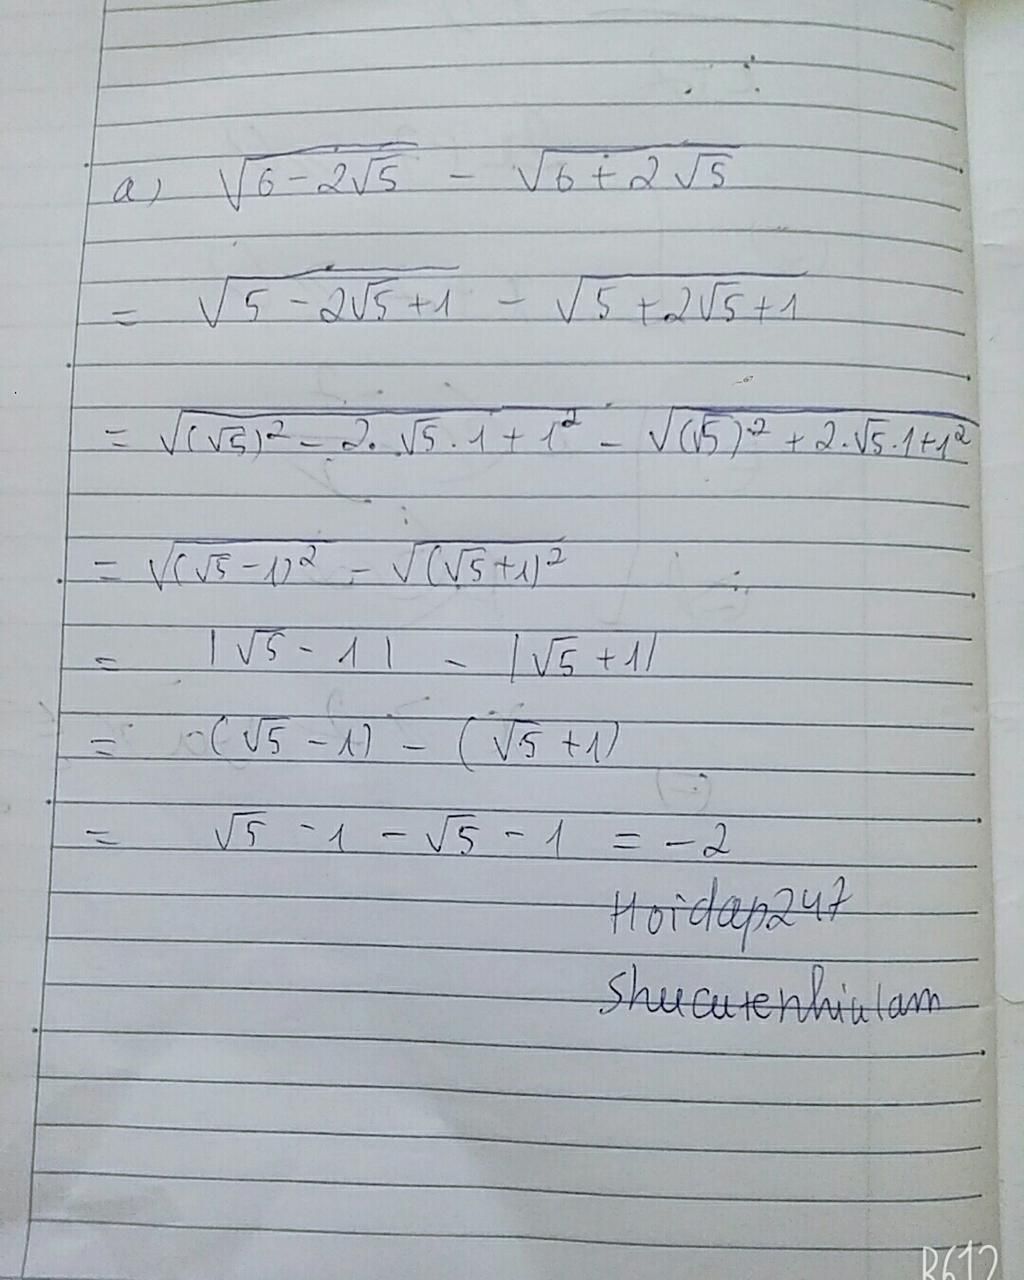 a) √6 - 2√5 - √6 + 2√5
= √5 - 2√5 + 1 - √5 + 2√5 + 1
67
= √(√5)² - 2.√5.1 + 1² - √(√5)² + 2.√5.1+1²
= √(√5-1)² - √(√5+1)²
= |√5 - 1| - |√5 + 1|
= (√5 - 1) - (√5 + 1)
= √5 - 1 - √5 - 1 = -2
Hoidap247
Shucutenhiulam
B612